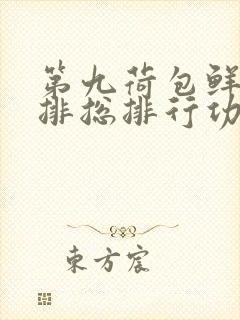 第九荷包鲜
排总排行功
東方宸